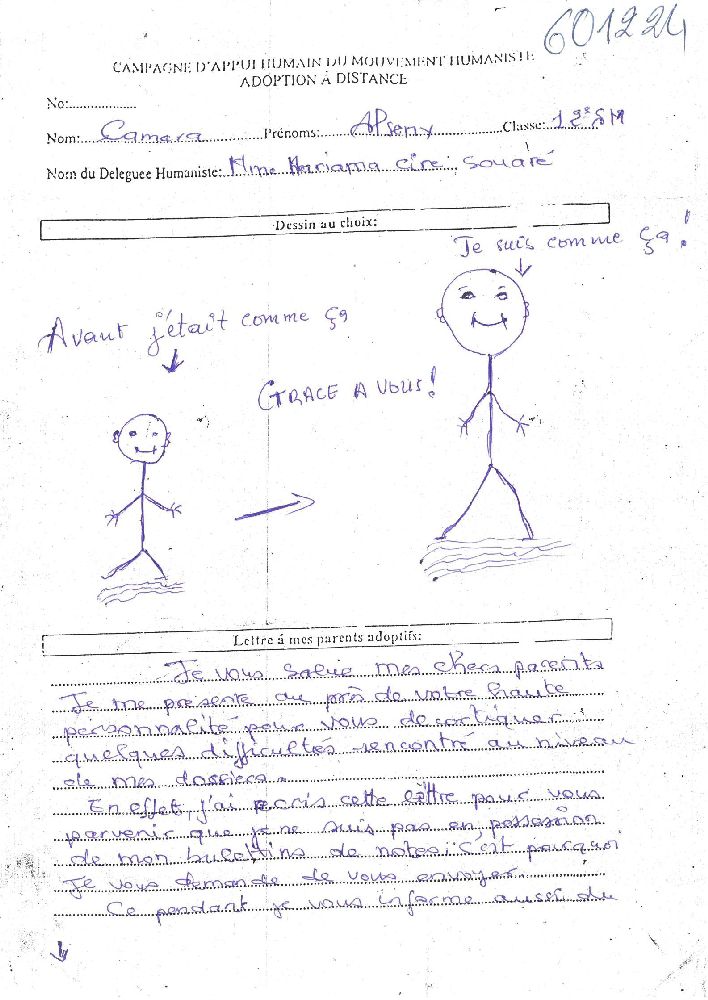 601224
CAMPAGNE D'APPUI HUMAIN DU MOUVEMENT HUMANISTE
ADOPTION Á DISTANCE
No:....................
Nom: Camara Prénoms: Alseny Classe: 12e SM
Nom du Deleguee Humaniste: Mme Mariama cire Souaré
Dessin au choix:
Je suis comme ça!
Avant j'était comme ça
GRACE A VOUS!
Lettre á mes parents adoptifs:
Je vous salue mes chers parents
Je me présente au près de votre haute
personnalité pour vous decortiquer
quelques difficultés rencontré au niveau
de mes dossiers.
En effet, j'ai ecris cette lettre pour vous
parvenir que je ne suis pas en possession
de mon bulettins de notes; c'est pourquoi
Je vous demande de vous envoyer.
Ce pendant je vous informe aussi du